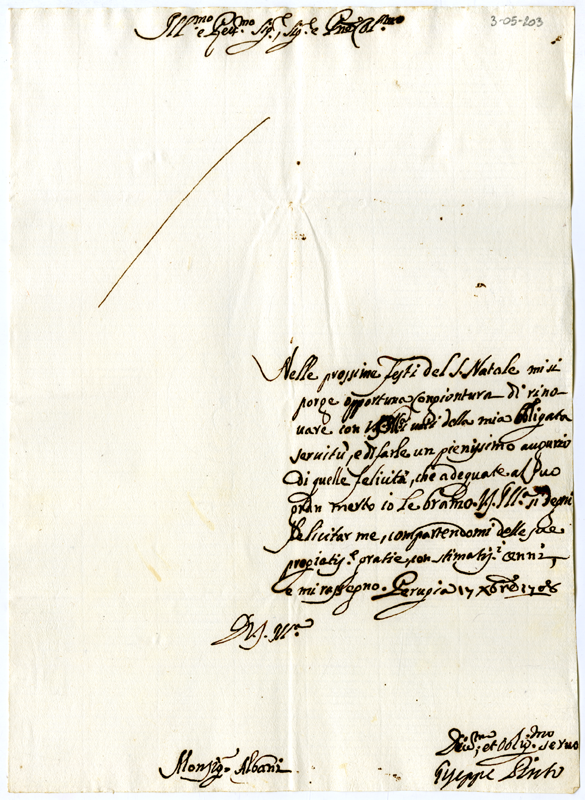 3-05-203
Ill.mo e Rev.mo Sig.r, Sig.r e P.ne Col.mo
Nelle prossime Festi del S. Natale mi si
porge opportuna conpiontura di rino-
uare con gl'atti umili della mia obligata
seruitù, e di farle un pienissimo augurio
di quelle felicità, che adequate al suo
gran merto io le bramo. V.S. Ill.ma si degni
felicitar me, compartendomi delle sue
pregiatis.e gratie, con stimatis.i cenni,
e mi rassegno. Perugia 17 Xbre 1706
Di V.S. Ill.ma
Deu.mo, et Oblig.mo seruo
Monsig.r Albani
Giseppe Pinto